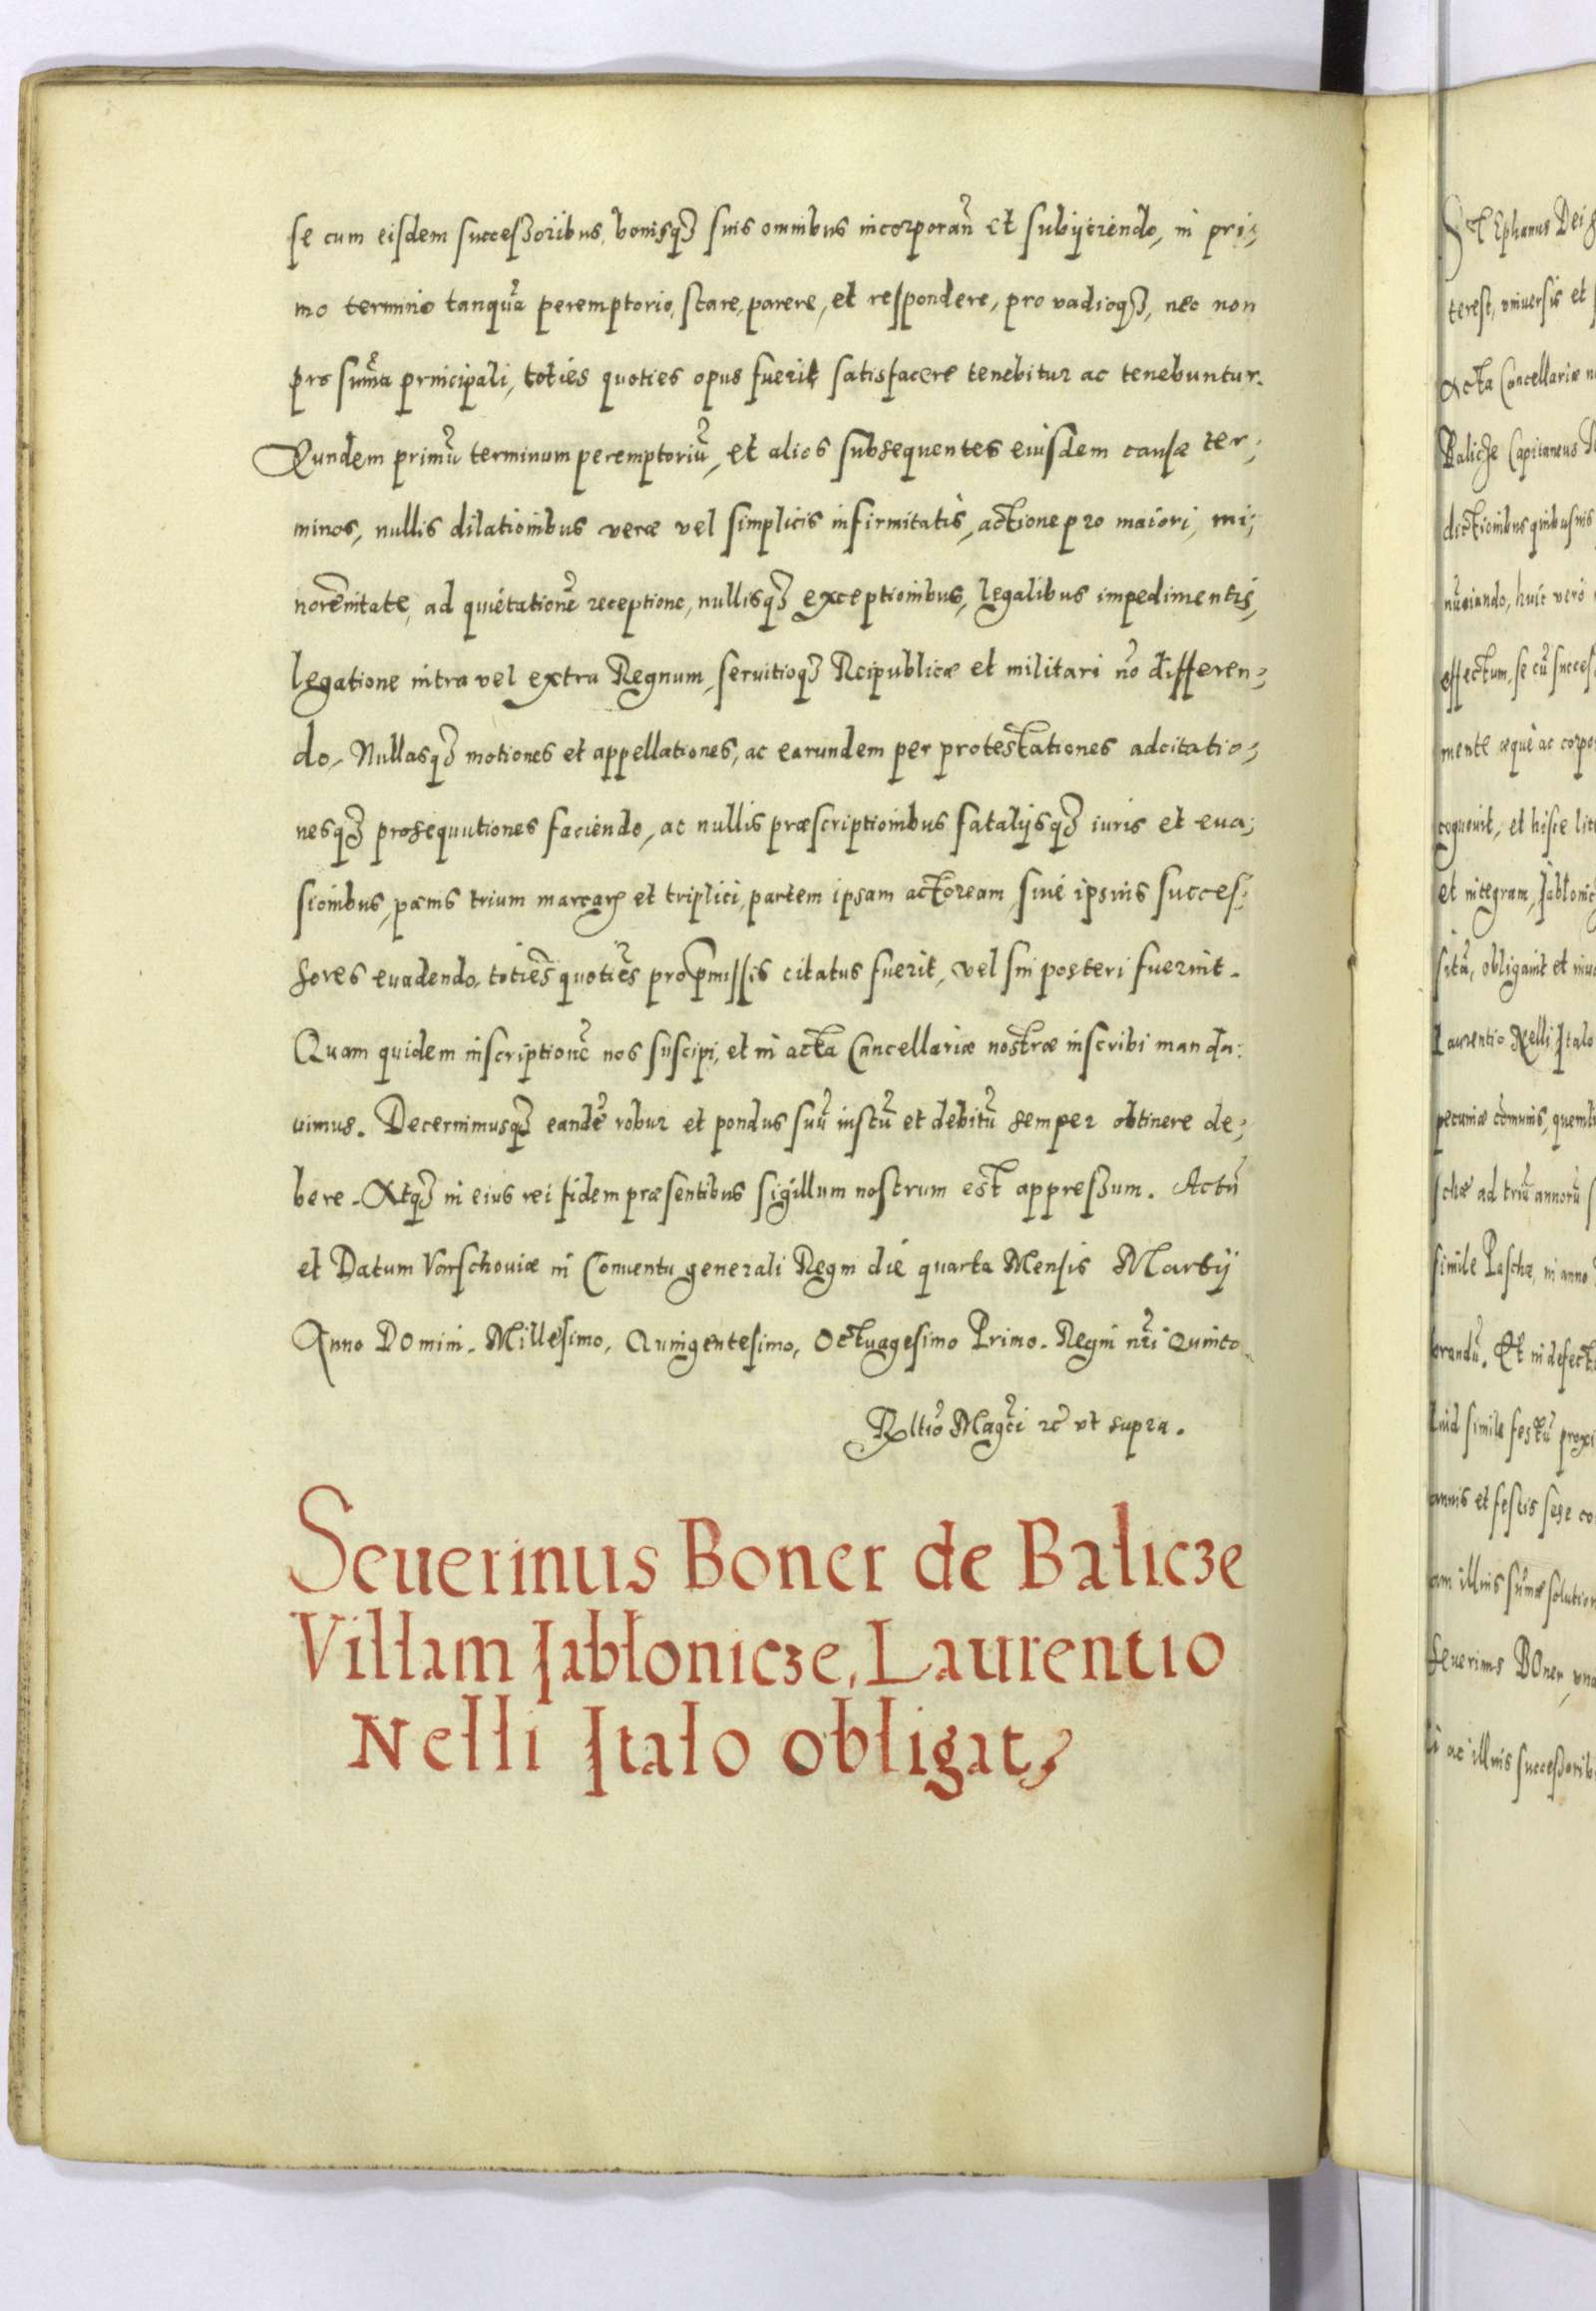 se cum eisdem successoribus, bonisqȝ suis omnibus incorporan̄ et subijciendo, in pri-
mo termino tanquā peremptorio, stare, parere, et respondere, pro vadioqȝ, nec non
pro sum̄a principali, toties quoties opus fuerit satisfacere tenebitur ac tenebuntur.
Eundem primū terminum peremptoriū, et alios subsequentes eiusdem causæ ter-
minos, nullis dilationibus veræ vel simplicis infirmitatis, actione pro maiori, mi-
norēnitate, ad quietationē receptione, nullisqȝ exceptionibus, legalibus impedimentis,
legatione intra vel extra Regnum, seruitioqȝ Reipublicæ et militari nō differen-
do, Nullasqȝ motiones et appellationes, ac earundem per protestationes adcitatio-
nesqȝ prosequutiones faciendo, ac nullis præscriptionibus fatalijsqȝ iuris et eua-
sionibus, pœnis trium marcarꝝ et triplici, partem ipsam actoream siue ipsius succes-
sores euadendo, totiēs quotiēs pro p̄missis citatus fuerit, vel sui posteri fuerint.
Quam quidem inscriptionē nos suscipi, et in acta Cancellariæ nostræ inscribi manda-
uimus. Decernimusqȝ eandē robur et pondus suū iustū et debitū semper obtinere de-
bere. Atqȝ in eius rei fidem præsentibus sigillum nostrum est appressum. Actū
et Datum Varschouiæ in Conuentu generali Regni die quarta Mensis Martij
Anno Domini. Millesimo, Quingentesimo, Octuagesimo Primo. Regni nr̄i Quinto
Rltiō Magc̄i &c̄ vt supra.
Seuerinus Boner de Balicze
Villam Jabłonicze, Laurentio
Nelli Italo obligat,
St Ephanus Dei g
terest, vniuersis et
Acta Cancellariæ n
Balicze Capitaneus
dictionibus quibusuis
nūciando, huic vero
effectum, se cū succes
mente æque ac corpo
cognouit, et hisce lit
et integram, Jablonic
sitā, obligauit et inu
Laurentio Nelli Italo
pecuniæ cōmunis, quemli
schæ ad triū annorū
simile Paschæ, in anno
brandū. Et in defect
liud simile festū proxi
annis et festis sese co
am illius sum̄æ solution
Seuerinus BOner, vna
li ac illius successorib